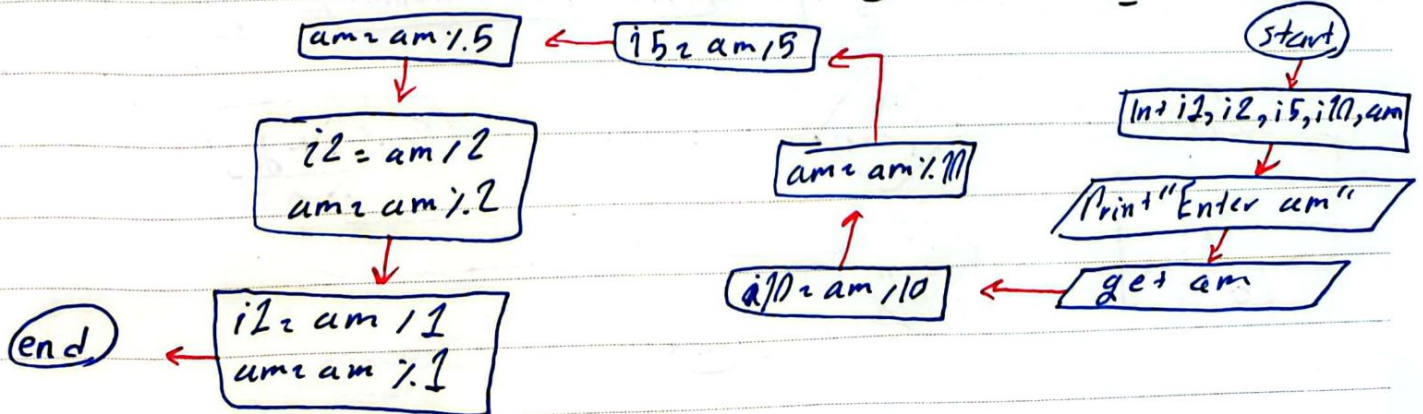 start
Int i1, i2, i5, i10, am
Print "Enter am"
get am
i10 = am / 10
am = am % 10
i5 = am / 5
am = am % 5
i2 = am / 2
am = am % 2
i1 = am / 1
am = am % 1
end